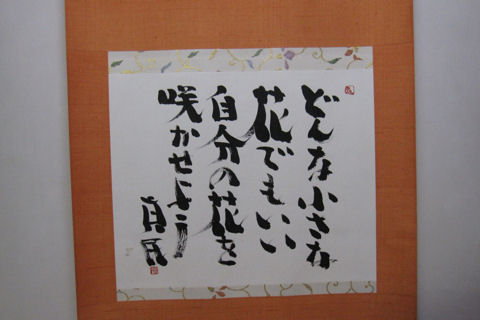 どんな小さな
花でもいい
自分の花を
咲かせよう
貞民